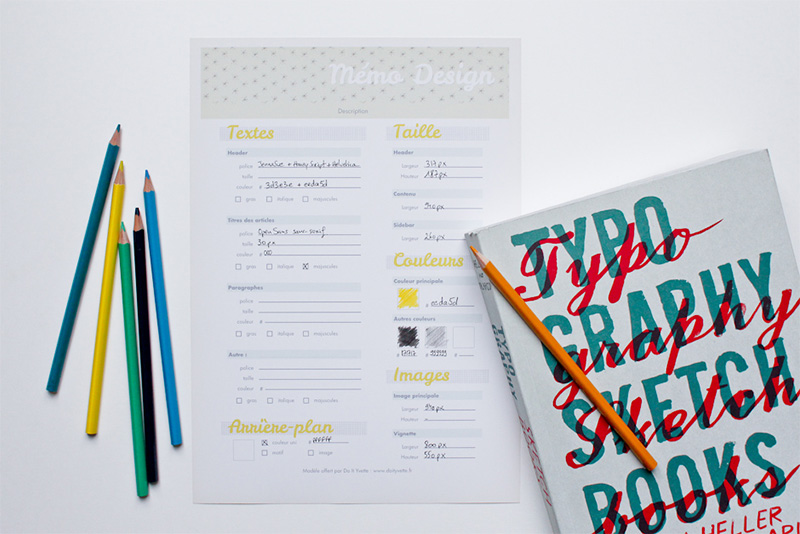 Mémo Design
Description
Textes
Header
police Jenna Sue + Honey Script + Helvetica
taille
couleur # 3d3e3e + eada5d
gras italique majuscules
Titres des articles
police Open Sans sans-serif
taille 30px
couleur #000
gras italique majuscules
Paragraphes
police
taille
couleur #
gras italique majuscules
Autre :
police
taille
couleur #
gras italique majuscules
Arrière-plan
couleur uni : #ffffff
motif image
Taille
Header
Largeur 317px
Hauteur 187px
Contenu
Largeur
Sidebar
Largeur 260px
Couleurs
Couleur principale
# eada5d
Autres couleurs
Images
Image principale
Largeur
Hauteur
Vignette
Largeur 800px
Hauteur 550px
Modèle offert par Do It Yvette : www.doityvette.fr
TYPO
GRAPHY
SKETCH
BOOKS
Typo
graphy
Sketch
books
HELLER